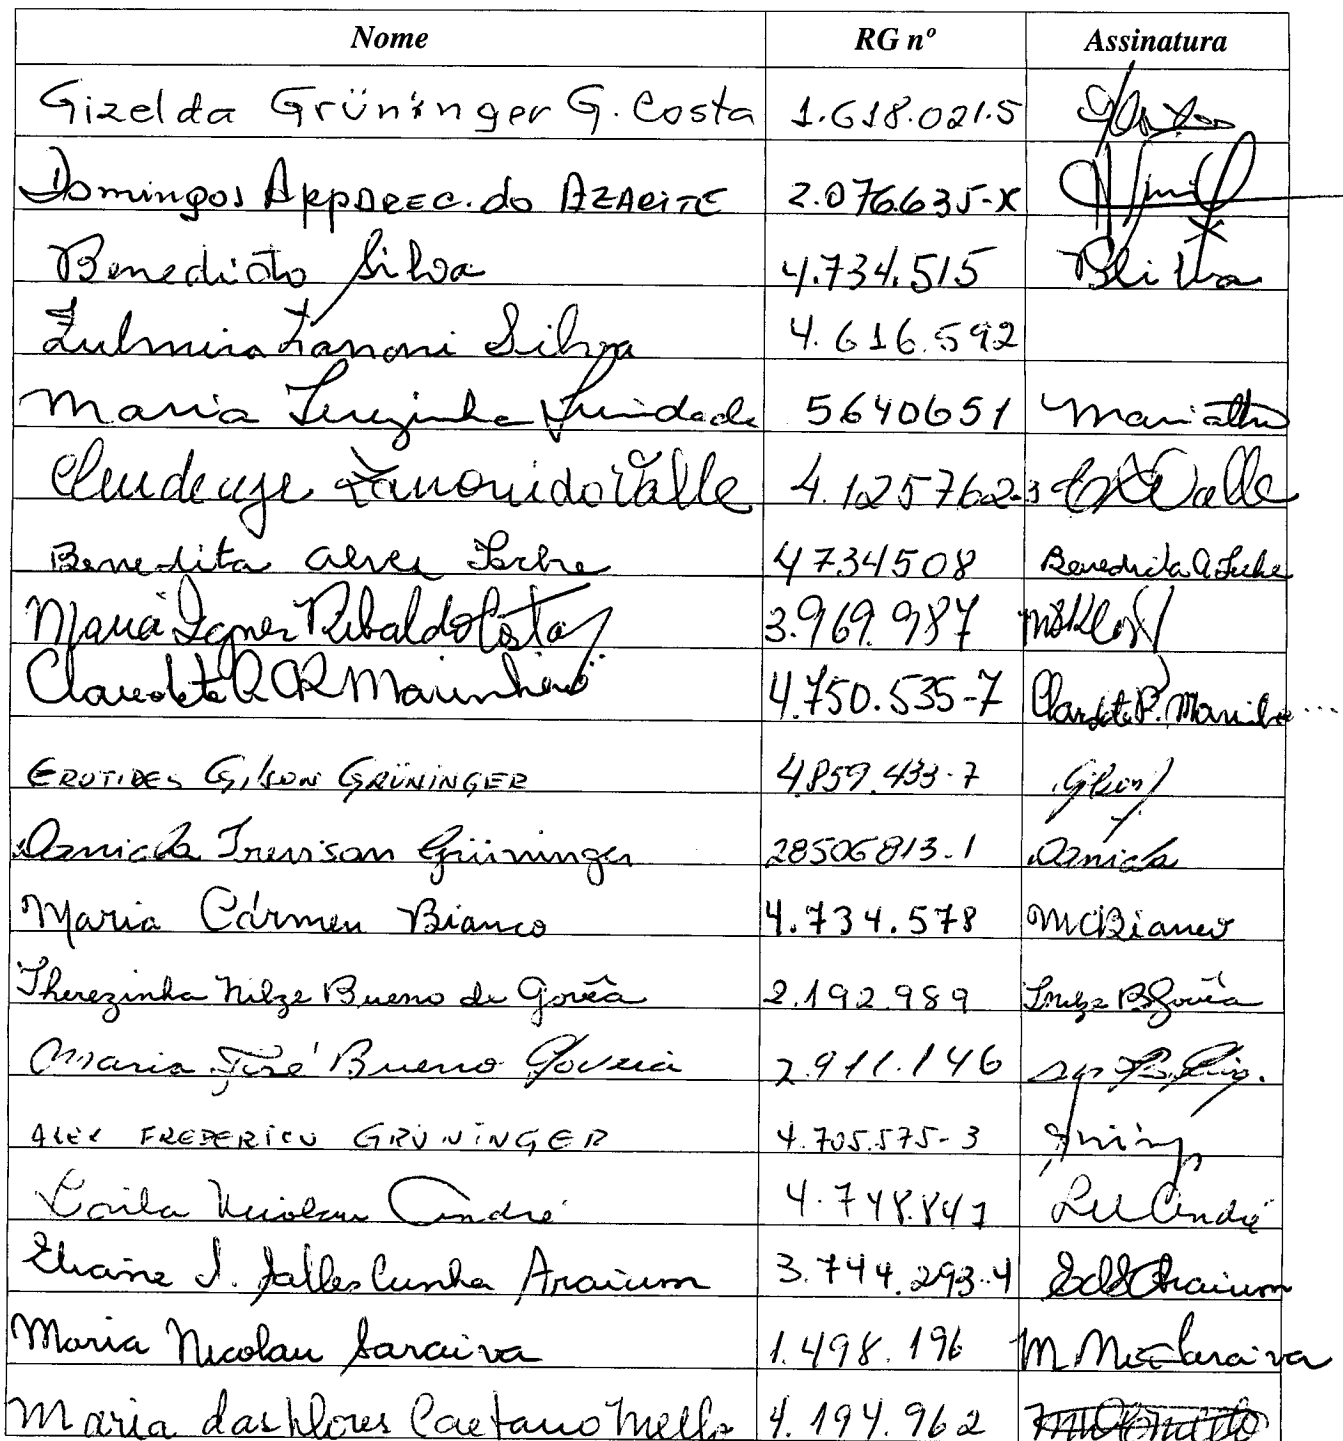 Nome RG nº Assinatura
Gizelda Grüninger G. Costa 1.618.021.5
Domingos Apparec.do AZARITE 2.076.635-X
Benedicto Silva 4.734.515 BSilva
Zulmira Zanoni Silva 4.616.592
Maria Terezinha Trindade 5640651
Zanoni do Valle 4.125762-3 Valle
Benedita Alves 4734508 Benedicta A.
Maria Ignez Ribaldo Costa 3.969.987
Claudete R. Marinheiro 4.750.535-7 Claudete P.
EROTIDES GILSON GRÜNINGER 4.859.433-7
Daniela Trevisan Grüninger 28506813.1 Daniela
Maria Cármen Bianco 4.734.578 MCBianco
Therezinha Nilze Bueno de Govêa 2.192.989 Tnilze B Govêa
Maria José Bueno Gouveia 2.911.146
ALEX FREDERICO GRÜNINGER 4.705.575-3
Laila Nicolau André 4.748.841 André
Elvaine J. Salles Cunha Araium 3.744.293-4
Maria Nicolau Saraiva 1.498.196 M Nic Saraiva
Maria das Flores Caetano Mello 4.194.962